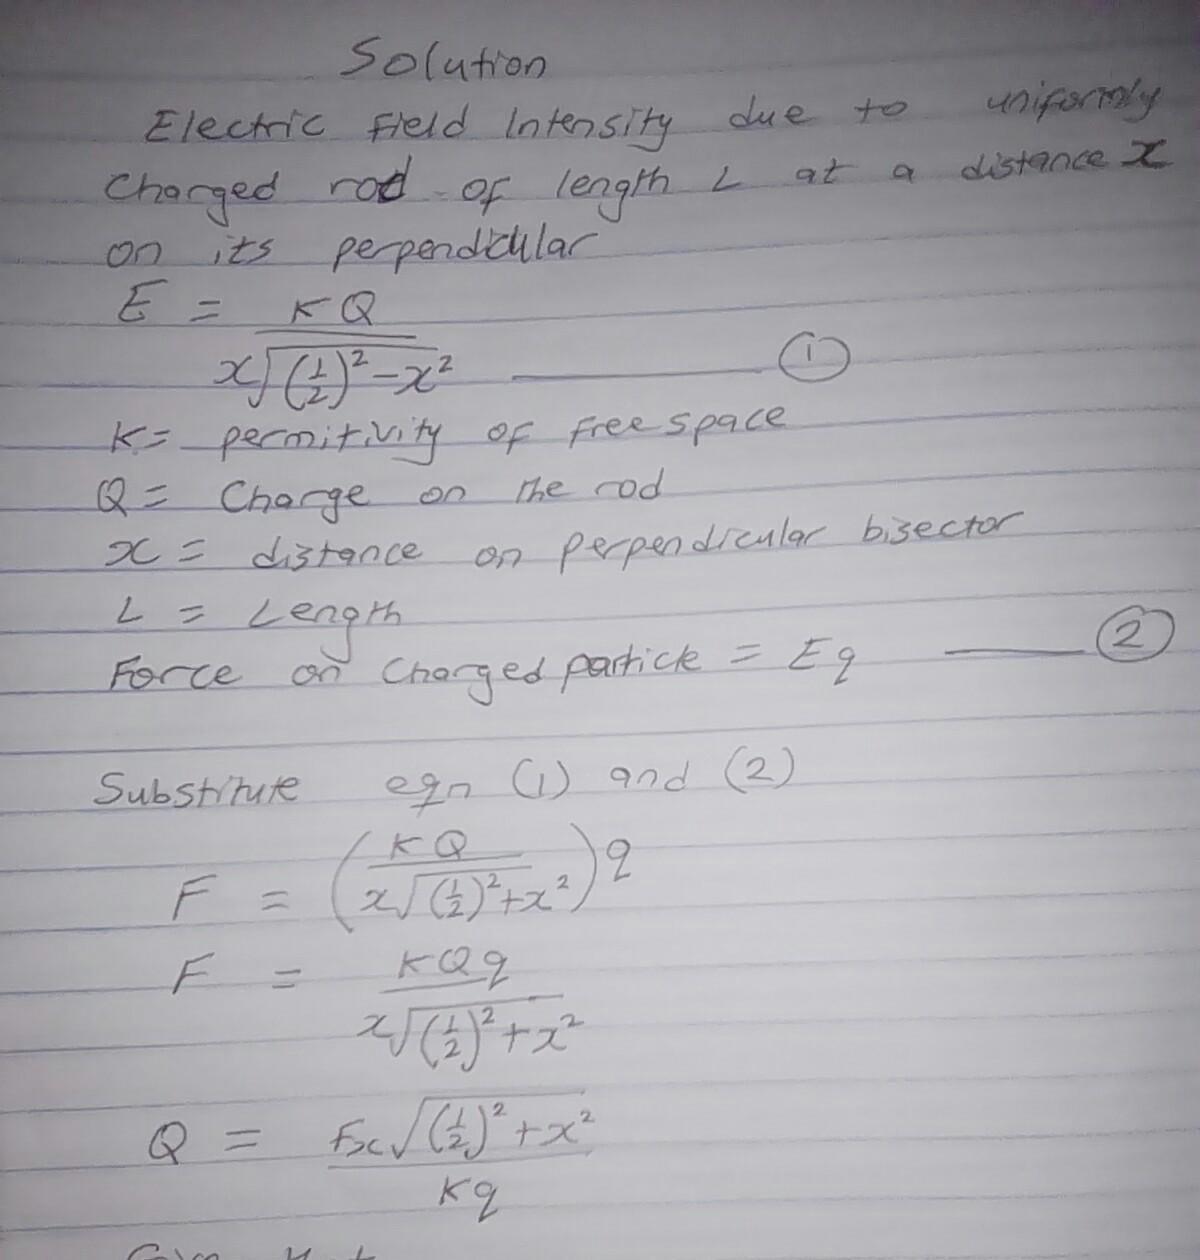 Solution
Electric Field Intensity due to uniformly
Charged rod of length L at a distance x
on its perpendicular
E = KQ
x√(L/2)² - x² ——— ①
K = permitivity of free space
Q = Charge on the rod
x = distance on perpendicular bisector
L = Length
Force on Charged particle = Eq ——— ②
Substitute eqn (1) and (2)
F = (KQ / x√(L/2)² + x²) q
F = KQq
x√(L/2)² + x²
Q = Fx√(L/2)² + x²
Kq